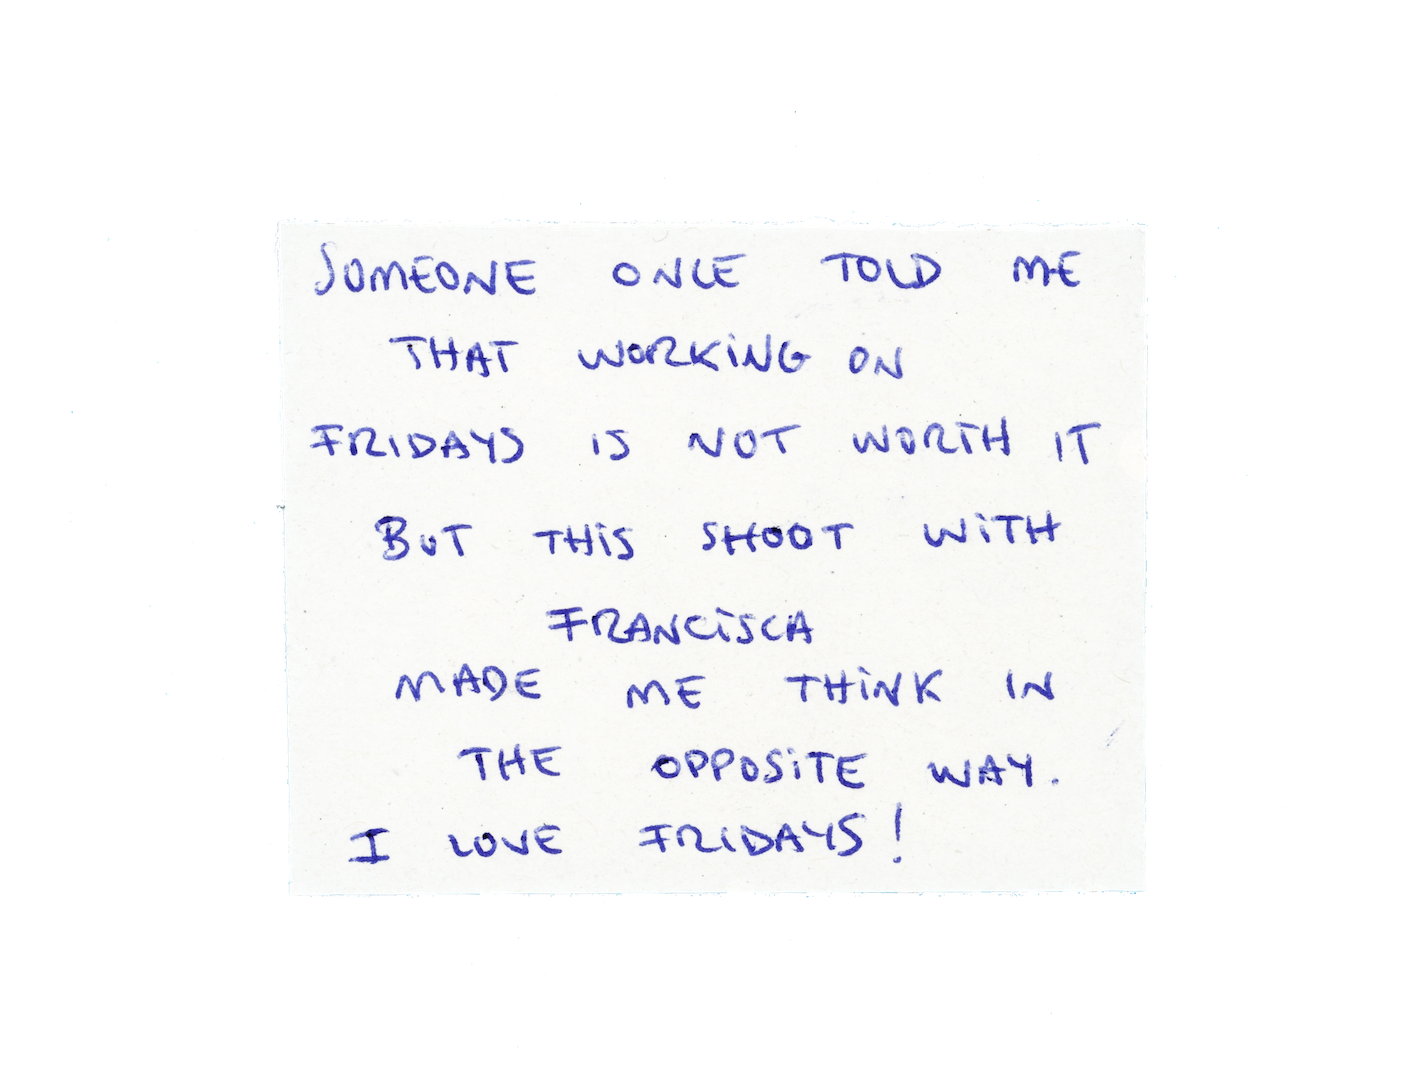 SOMEONE ONCE TOLD ME
THAT WORKING ON
FRIDAYS IS NOT WORTH IT
BUT THIS SHOOT WITH
FRANCISCA
MADE ME THINK IN
THE OPPOSITE WAY.
I LOVE FRIDAYS!